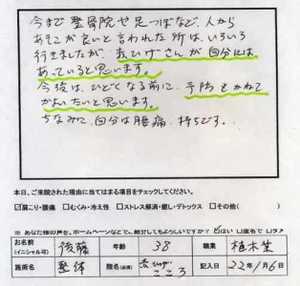 今まで整骨院や足つぼなど、人から
あそこが良いと言われた所は、いろいろ
行きましたが、赤ひげさんが自分には、
あっていると思います。
今後は、ひどくなる前に、予防をかねて
かよいたいと思います。
ちなみに、自分は腰痛持ちです・・
本日、ご来院された理由に当てはまる項目をチェックしてください。
☑肩こり・腰痛 □むくみ・冷え性 □ストレス解消・癒し・デトックス □その他( )
※ あなた様の声を、ホームページなどで、紹介してもよろしいですか?
お名前 (イニシャル可) 後藤 年齢 38 職業 植木業
施術名 整体 院名 赤ひげ こころ 記入日 22年1月6日